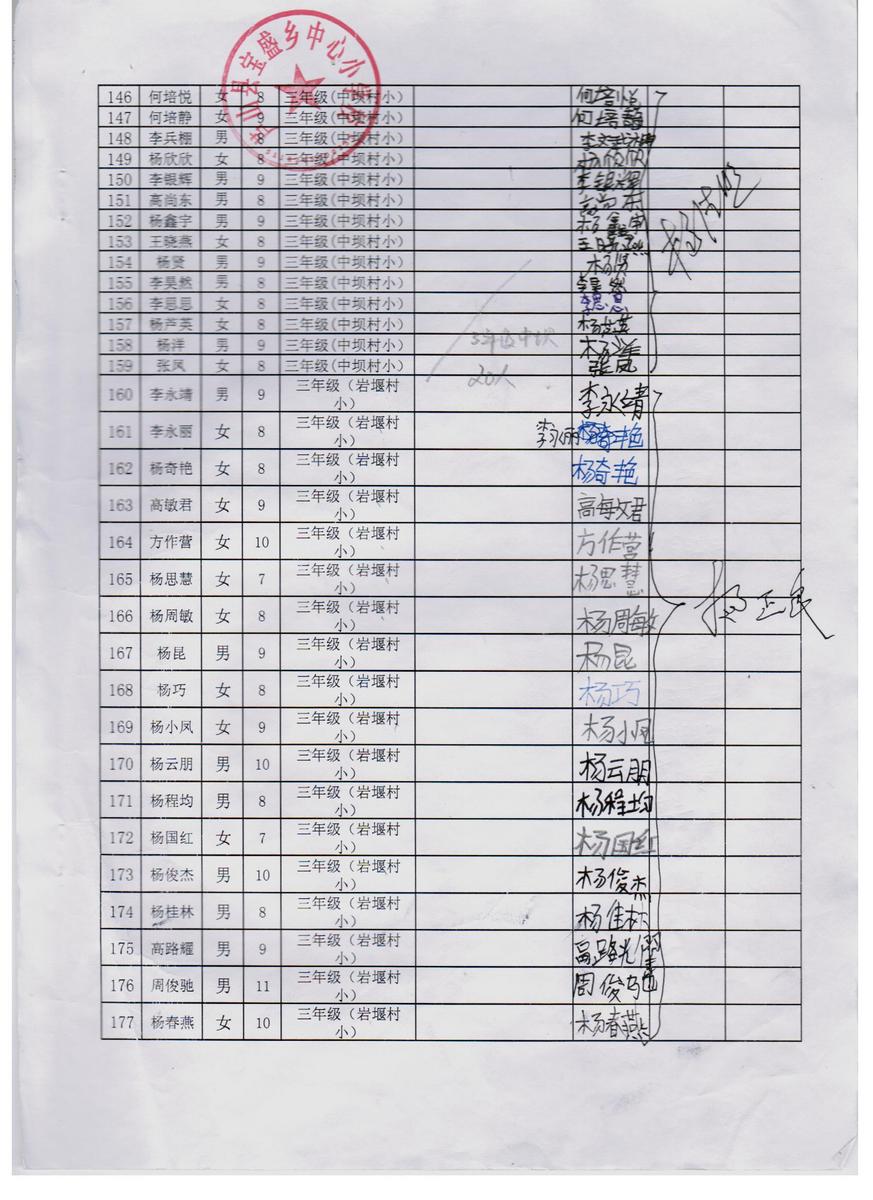 芦山县宝盛乡中心小学
146 何培悦 女 8 三年级(中坝村小) 何培悦
147 何培静 女 9 三年级(中坝村小) 何培静
148 李兵棚 男 8 三年级(中坝村小)
149 杨欣欣 女 8 三年级(中坝村小) 杨欣欣
150 李银辉 男 9 三年级(中坝村小) 李银辉
151 高尚东 男 8 三年级(中坝村小) 高尚东
152 杨鑫宇 男 9 三年级(中坝村小) 杨鑫宇
153 王晓燕 女 8 三年级(中坝村小) 王晓燕
154 杨贤 男 9 三年级(中坝村小) 杨贤
155 李昊然 男 8 三年级(中坝村小)
156 李思思 女 8 三年级(中坝村小) 李思思
157 杨芦英 女 8 三年级(中坝村小) 杨芦英
158 杨洋 男 9 三年级(中坝村小) 杨洋
3年级中坝
159 张凤 女 8 三年级(中坝村小) 张凤
20人
160 李永靖 男 9 三年级（岩堰村
小） 李永靖
161 李永丽 女 8 三年级（岩堰村
小） 李永丽 杨奇艳
162 杨奇艳 女 8 三年级（岩堰村
小） 杨奇艳
163 高敏君 女 9 三年级（岩堰村
小） 高敏君
164 方作营 女 10 三年级（岩堰村
小） 方作营
165 杨思慧 女 7 三年级（岩堰村
小） 杨思慧
166 杨周敏 女 8 三年级（岩堰村
小） 杨周敏
杨正良
167 杨昆 男 9 三年级（岩堰村
小） 杨昆
168 杨巧 女 8 三年级（岩堰村
小） 杨巧
169 杨小凤 女 9 三年级（岩堰村
小） 杨小凤
170 杨云朋 男 10 三年级（岩堰村
小） 杨云朋
171 杨程均 男 8 三年级（岩堰村
小） 杨程均
172 杨国红 女 7 三年级（岩堰村
小） 杨国红
173 杨俊杰 男 10 三年级（岩堰村
小） 杨俊杰
174 杨桂林 男 8 三年级（岩堰村
小） 杨佳林
175 高路耀 男 9 三年级（岩堰村
小） 高路耀
176 周俊驰 男 11 三年级（岩堰村
小） 周俊驰
177 杨春燕 女 10 三年级（岩堰村
小） 杨春燕